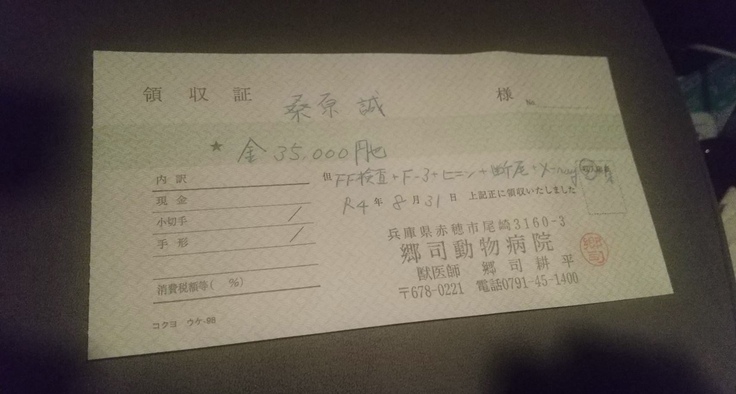 領収証 桑原 誠 様 No.
★ 金 35,000円也
内訳
現金
小切手
手形
消費税額等( %)
コクヨ ウケ-98
但 FF検査+F-3+ヒニン+断尾+X-ray
R4年8月31日 上記正に領収いたしました
兵庫県赤穂市尾崎3160-3
郷司動物病院
獣医師 郷司耕平
〒678-0221 電話0791-45-1400
郷司